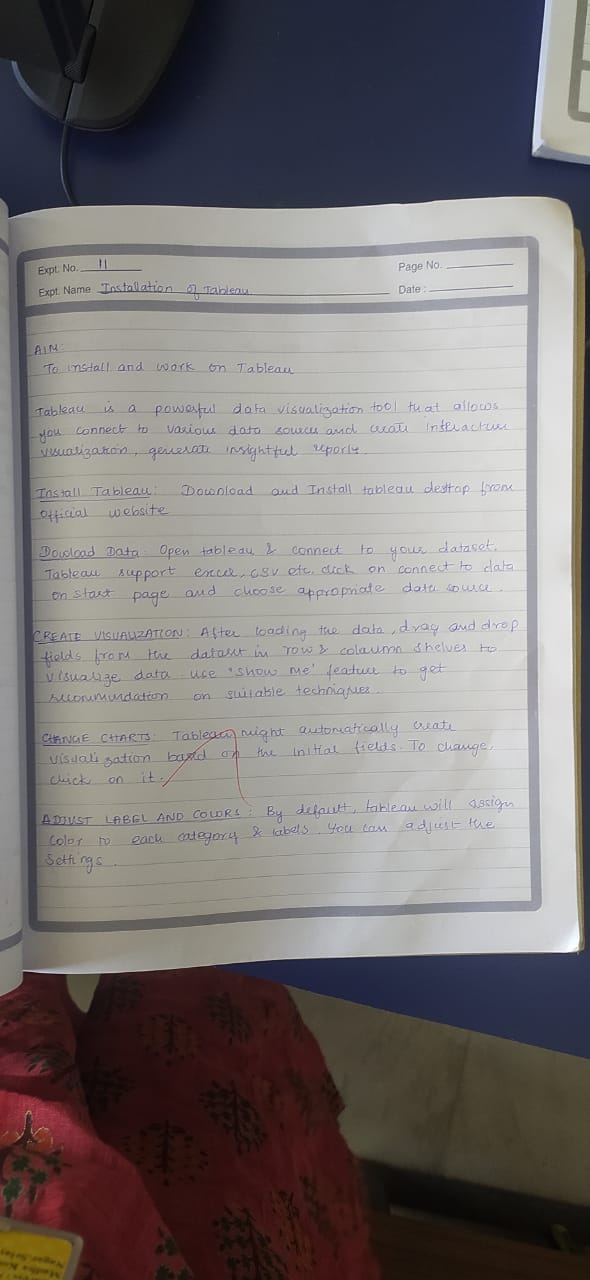 Expt. No. 11
Page No.
Expt. Name Installation of Tableau
Date :
AIM:
To install and work on Tableau
Tableau is a powerful data visualization tool that allows
you connect to various data sources and create interactive
visualization, generate insightful reports.
Install Tableau: Download and Install tableau desktop from
official website
Dowload Data: Open tableau & connect to your dataset.
Tableau support excel, CSV etc. click on connect to data
on start page and choose appropriate data source.
CREATE VISUALIZATION: After loading the data, drag and drop
fields from the dataset in row & colaumn shelves to
visualize data. use 'show me' feature to get
recommendation on suitable techniques.
CHANGE CHARTS: Tableau might automatically create
visualization based on the initial fields. To change,
click on it.
ADJUST LABEL AND COLORS: By default, tableau will assign
color to each category & labels. You can adjust the
settings.